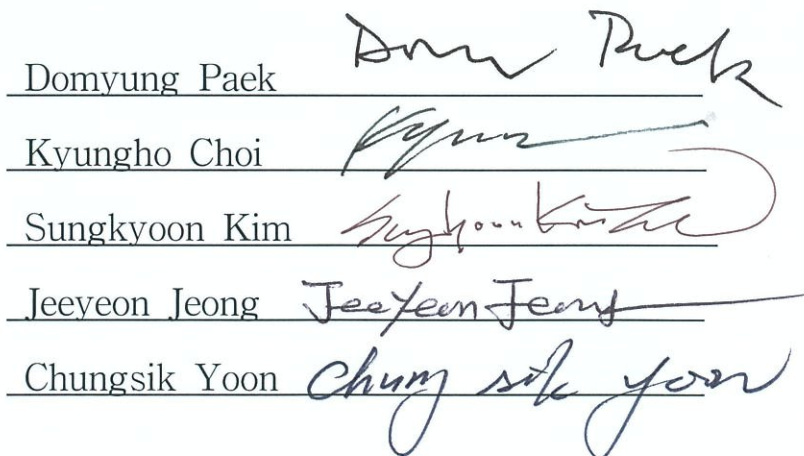 Domyung Paek
Kyungho Choi
Sungkyoon Kim
Jeeyeon Jeong JeeYeon Jeong
Chungsik Yoon Chung sik yoon